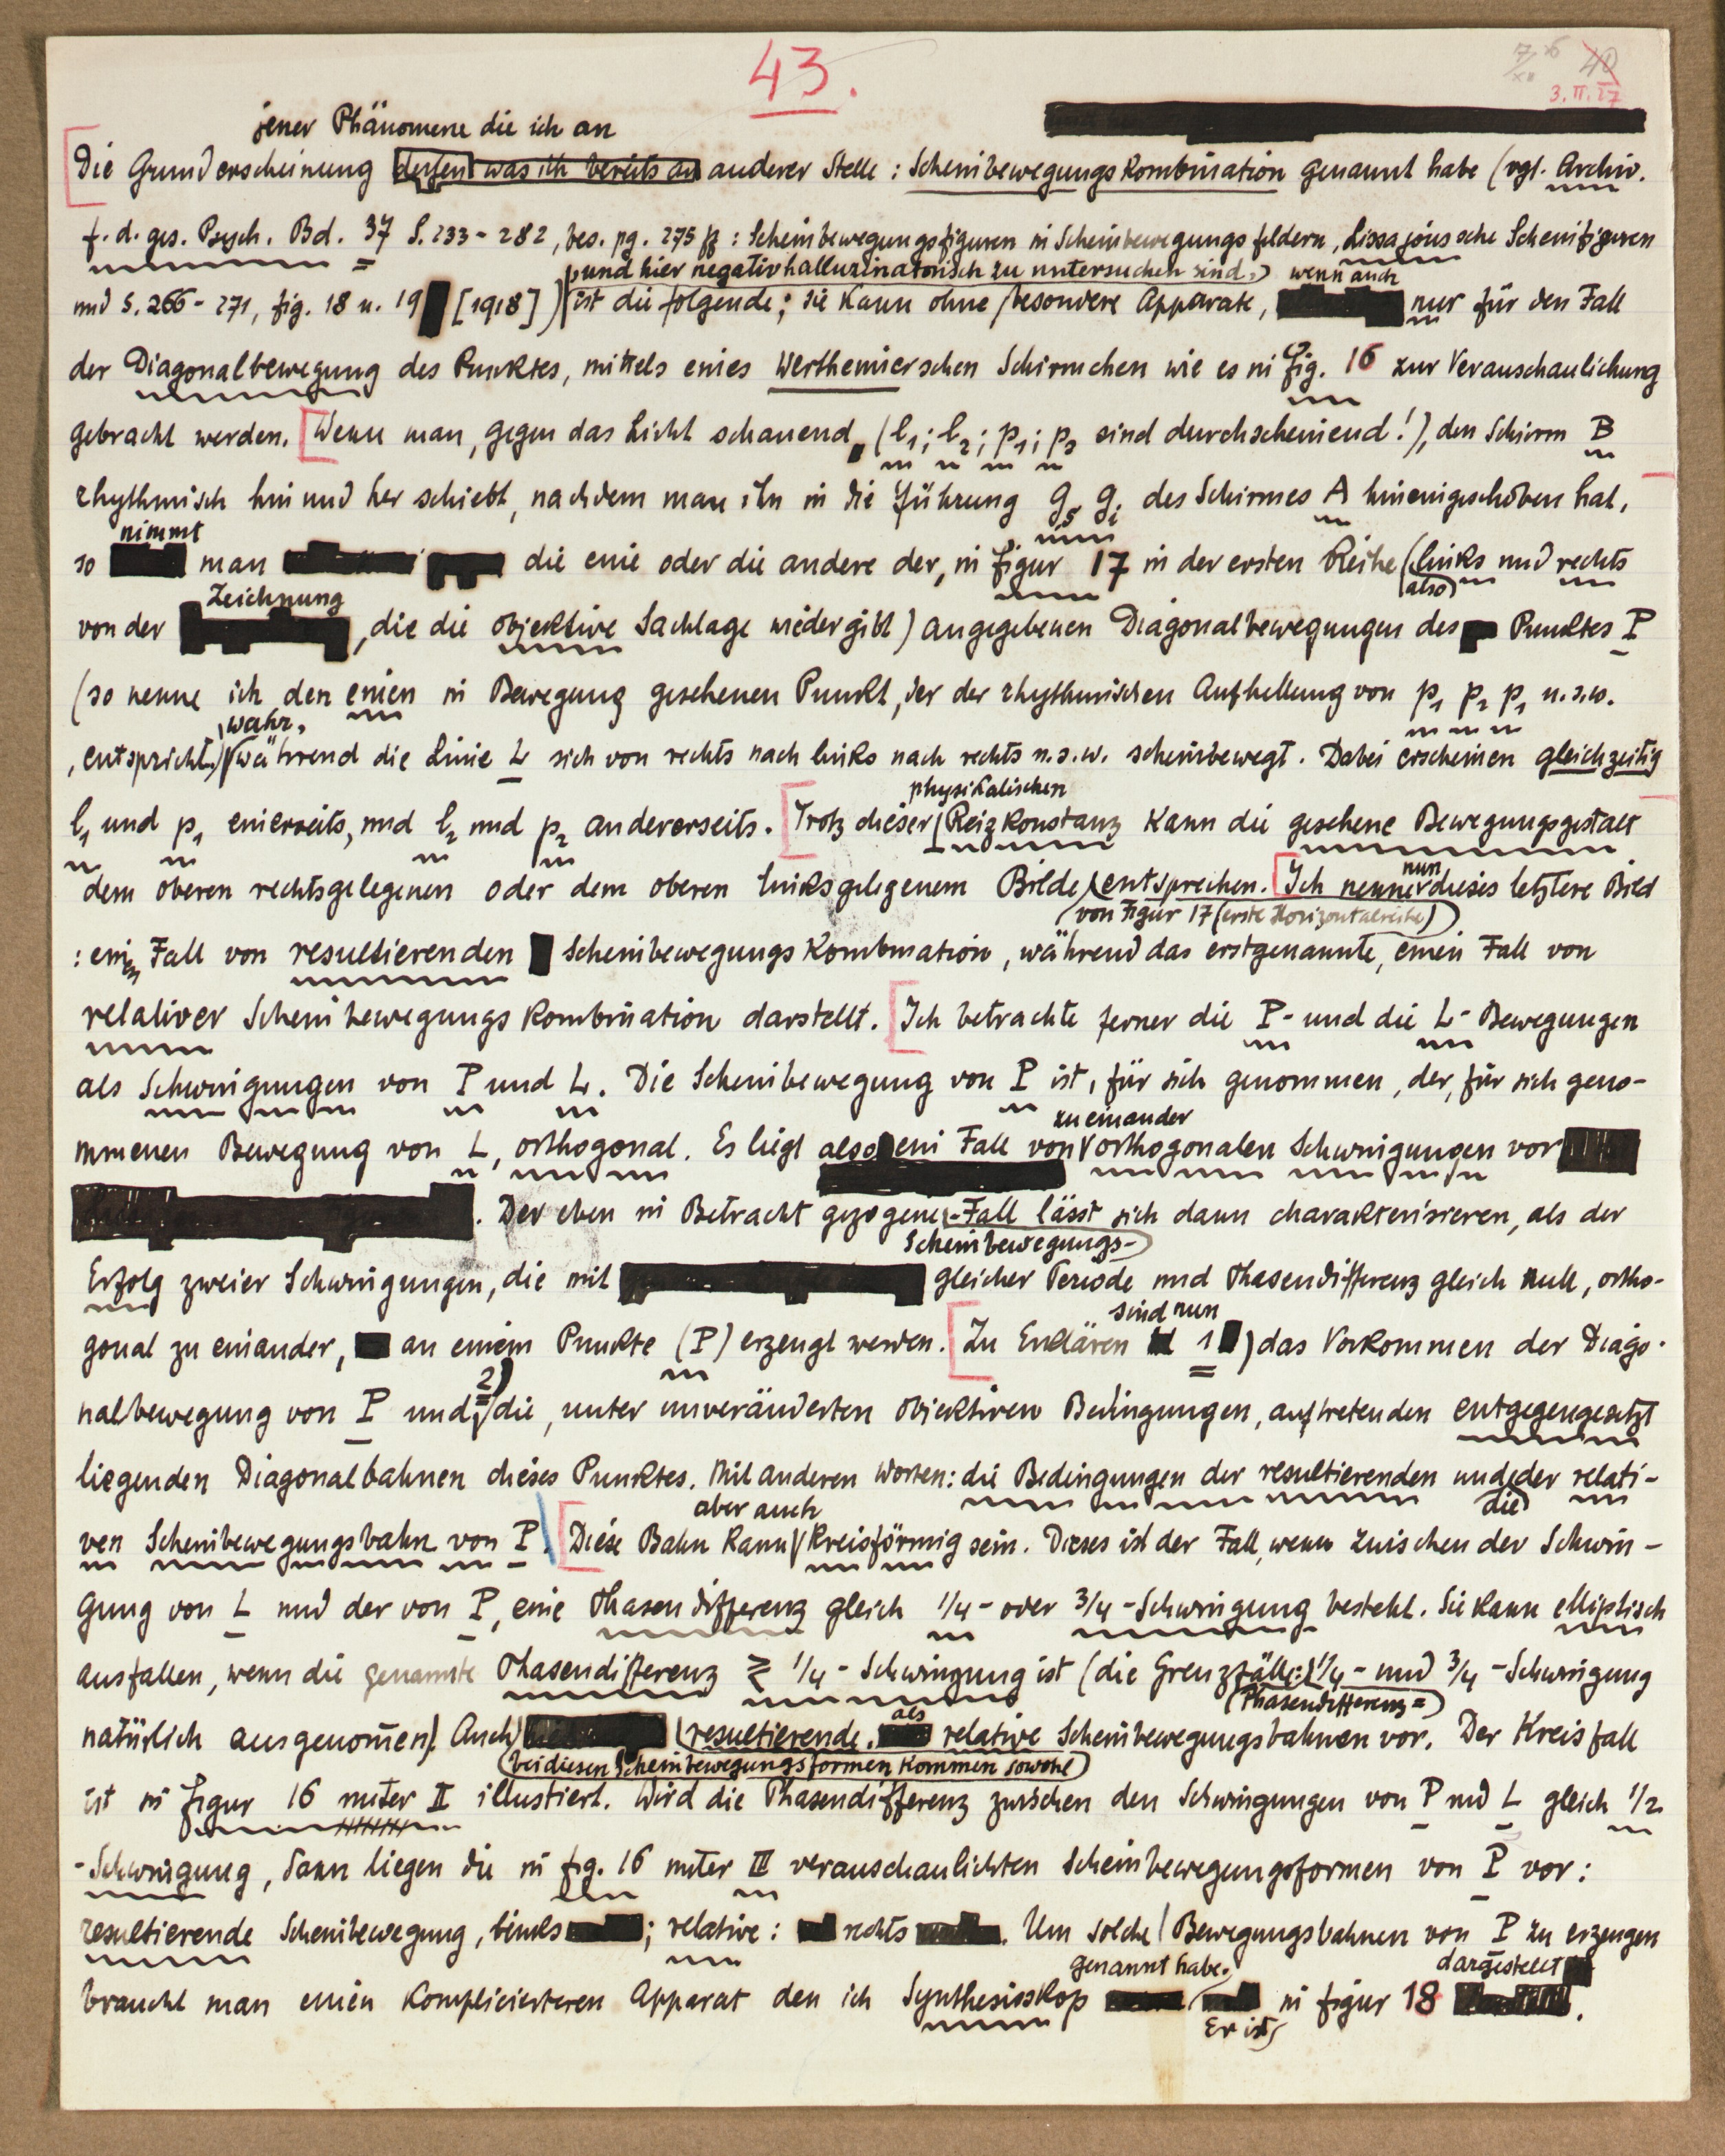 43.
40
3.II.27
jener Phänomene die ich an
Die Grunderscheinung dessen was ich bereits an anderer Stelle : Scheinbewegungskombination genannt habe (vgl. Archiv.
f. d. ges. Psych. Bd. 37 S. 233 - 282, bes. pg. 275 ff : Scheinbewegungsfiguren in Scheinbewegungsfeldern, Lissajóussche Scheinfiguren
und hier negativhalluzinatorisch zu untersuchen sind, wenn auch
und S. 266 - 271, fig. 18 u. 19 [1918]) ist die folgende; sie kann ohne besondere Apparate, nur für den Fall
der Diagonalbewegung des Punktes, mittels eines Wertheimerschen Schirmchen wie es in Fig. 16 zur Veranschaulichung
gebracht werden. Wenn man, gegen das Licht schauend, (l1; l2; p1; p2 sind durchscheinend!), den Schirm B
rhythmisch hin und her schiebt, nachdem man ihn in die Führung gs gi des Schirmes A hineingeschoben hat,
nimmt
so man die eine oder die andere der, in Figur 17 in der ersten Reihe (links und rechts
also
Zeichnung
von der , die die objektive Sachlage wiedergibt) angegebenen Diagonalbewegungen des Punktes P
(so nenne ich den einen in Bewegung gesehenen Punkt, der der rhythmischen Aufhellung von p1 p2 p1 u.s.w.
wahr,
, entspricht,) während die Linie L sich von rechts nach links nach rechts u.s.w. scheinbewegt. Dabei erscheinen gleichzeitig
physikalischen
l1 und p1 einerseits, und l2 und p2 andererseits. Trotz dieser Reizkonstanz kann die gesehene Bewegungsgestalt
nun
dem oberen rechtsgelegenen oder dem oberen linksgelegenem Bilde entsprechen. Ich nenne dieses letztere Bild
von Figur 17 (erste Horizontalreihe)
: einen Fall von resultierenden Scheinbewegungskombination, während das erstgenannte, einen Fall von
relativer Scheinbewegungskombination darstellt. Ich betrachte ferner die P- und die L- Bewegungen
als Schwingungen von P und L. Die Scheinbewegung von P ist, für sich genommen, der, für sich geno-
zu einander
mmenen Bewegung von L, orthogonal. Es liegt also ein Fall von orthogonalen Schwingungen vor
. Der eben in Betracht gezogene -Fall lässt sich dann charakterisieren, als der
Scheinbewegungs-
Erfolg zweier Schwingungen, die mit gleicher Periode und Phasendifferenz gleich null, ortho-
sind nun
gonal zu einander, an einem Punkte (P) erzeugt werden. Zu Erklären 1) das Vorkommen der Diago-
2)
nalbewegung von P und die, unter unveränderten objektiven Bedingungen, auftretenden entgegengesetzt
liegenden Diagonalbahnen dieses Punktes. Mit anderen Worten: die Bedingungen der resultierenden und der relati-
die
aber auch
ven Scheinbewegungsbahn von P. Diese Bahn kann kreisförmig sein. Dieses ist der Fall, wenn zwischen der Schwin-
gung von L und der von P, eine Phasendifferenz gleich 1/4 - oder 3/4 - Schwingung besteht. Sie kann elliptisch
ausfallen, wenn die genannte Phasendifferenz ≷ 1/4 - Schwingung ist (die Grenzfälle: 1/4 - und 3/4 - Schwingung
Phasendifferenz =
als
natürlich ausgenom̄en). Auch resultierende, relative Scheinbewegungsbahnen vor. Der Kreisfall
bei diesen Scheinbewegungsformen kommen sowohl
ist in Figur 16 unter II illustiert. Wird die Phasendifferenz zwischen den Schwingungen von P und L gleich 1/2
- Schwingung, dann liegen die in fig. 16 unter III veranschaulichten Scheinbewegungsformen von P vor:
resultierende Scheinbewegung, links ; relative : rechts . Um solche Bewegungsbahnen von P zu erzeugen
genannt habe. dargestellt
braucht man einen komplicierteren Apparat den ich Synthesisskop in Figur 18 .
Er ist